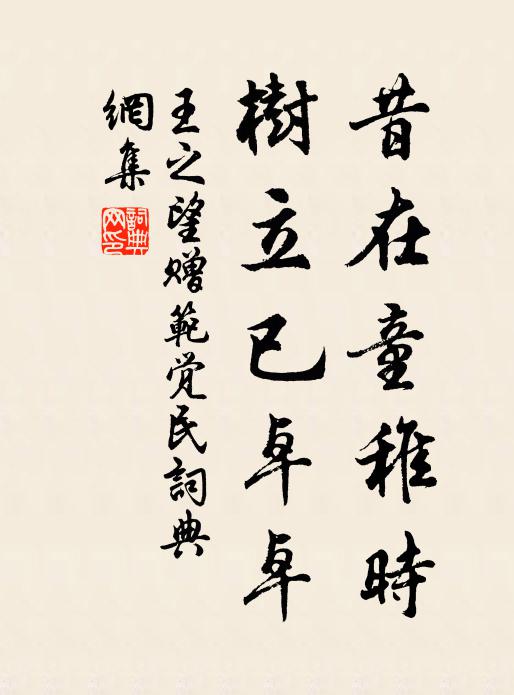 昔在童稚時
樹立已卓卓
王之望贈範觉民詞典
網集
詞典网印